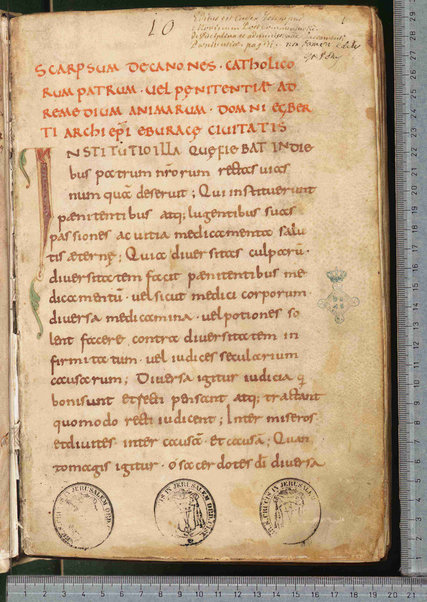 10
SCARPSUM DE CANONES · CATHOLICO
RUM PATRUM · UEL PENITENTIAE AD
REMEDIUM ANIMARUM · DOMNI EGBER
TI ARCHI EPI EBURACE CIUITATIS
INSTITUTIO ILLA QUE FIEBAT IN DIE
bus patrum nrorum rectas uias
num quã deseruit ; Qui instituerunt
paenitentibus atq; lugentibus suas
passiones ac uitia medicamenta salu
tis aeterne ; Quia diuersitas culparũ ·
diuersitatem facit paenitentibus me
dicamentũ · uel sicut medici corporum
diuersa medicamina · uel potiones so
lent facere contra diuersitatem in
firmitatum · uel iudices saecularium
causarum ; Diuersa igitur iudicia q
boni sunt et recti pensant atq; tractant
quomodo recti iudicent ; Inter miseros
et diuites inter causã · et causa ; Quan
to magis igitur · o sacerdotes di diuersa
IN JERUSALEM
CRUCIS IN JERUSALEM
CRUCIS IN JERUSALEM